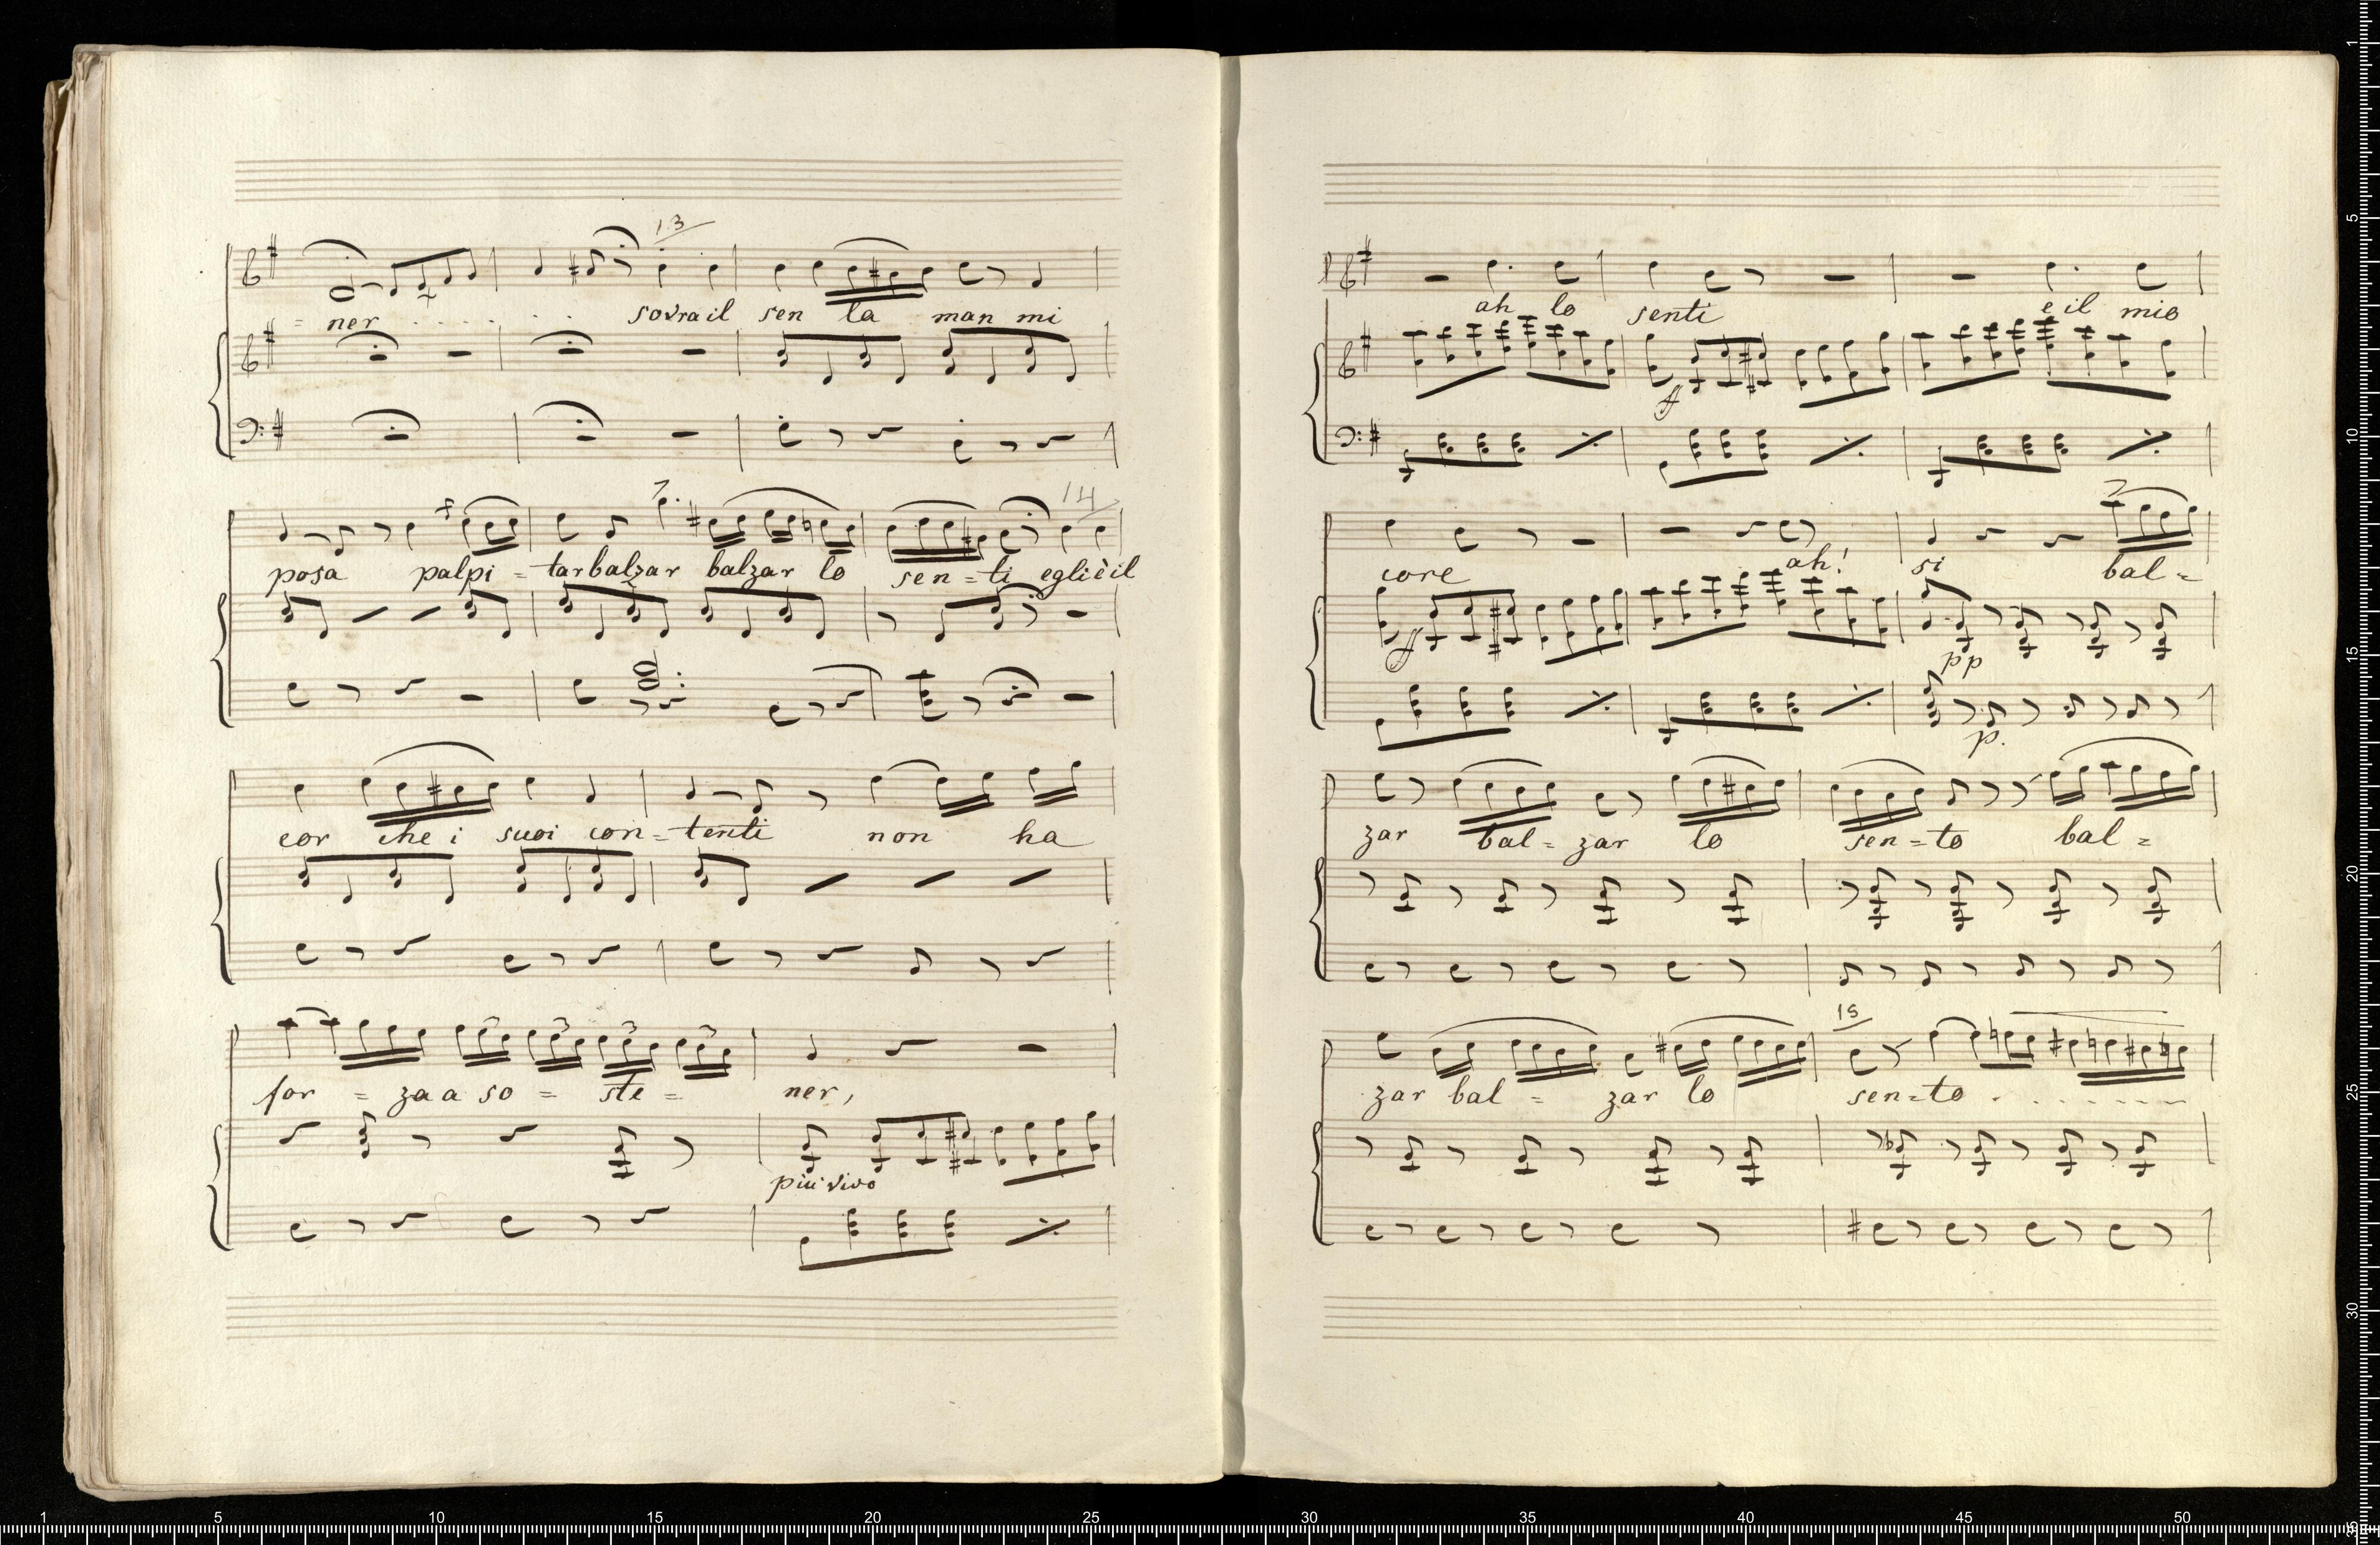 13
= ner . . . . . . sovra il sen la man mi
7. 14
posa palpi = tar balzar balzar lo sen = ti egli è il
cor che i suoi con = tenti non ha
3 3 3 3
for = za a so = ste = ner,
più vivo
ah lo senti e il mio
ff
7
core ah! si bal =
ff pp
p.
zar bal = zar lo sen = to bal =
15
zar bal = zar lo sen = to . . . . . .
1 5 10 15 20 25 30 35 40 45 50
1 5 10 15 20 25 30 35